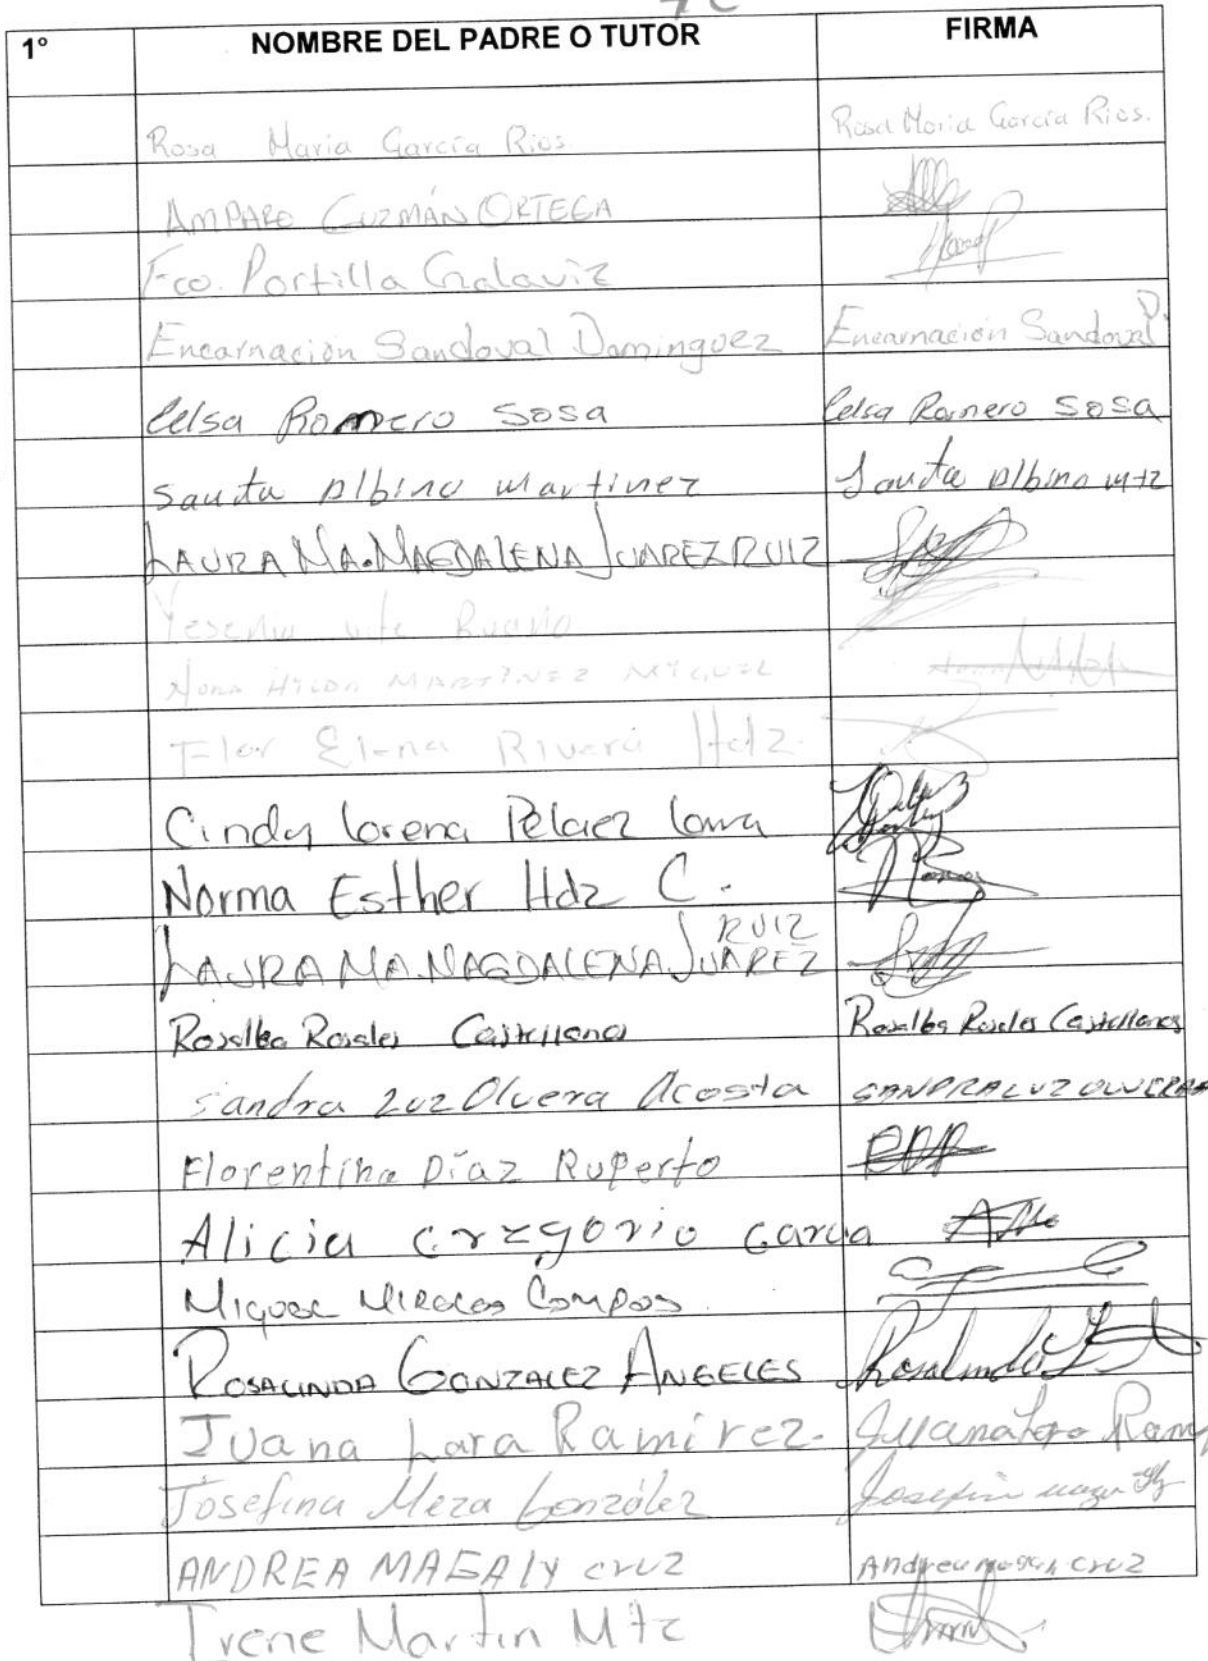 1° NOMBRE DEL PADRE O TUTOR FIRMA
Rosa Maria García Rios. Rosa Maria García Rios.
AMPARO GUZMÁN ORTEGA
Fco. Portilla Galaviz
Encarnación Sandoval Dominguez Encarnación Sandoval D.
Celsa Romero Sosa Celsa Romero Sosa
Santa Albino Martinez Santa Albino Mtz
LAURA MA. MAGDALENA JUAREZ RUIZ
Yesenia
MARTÍNEZ MIGUEL
Flor Elena Rivera Hdz.
Cindy Lorena Pelaez
Norma Esther Hdz C.
LAURA MA. MAGDALENA JUAREZ RUIZ
Rosalba Rosales Castellanos Rosalba Rosales Castellanos
Sandra Luz Olvera Acosta SANDRA LUZ OLVERA A
Florentina Díaz Ruperto
Alicia Gregorio Garcia
Miguel Mireles Campos
ROSALINDA GONZALEZ ANGELES Rosalinda
Juana Lara Ramírez. Juana Lara Ram
Josefina Meza González Josefina
ANDREA MAGALY cruz Andrea Magaly cruz
Irene Martin Mtz